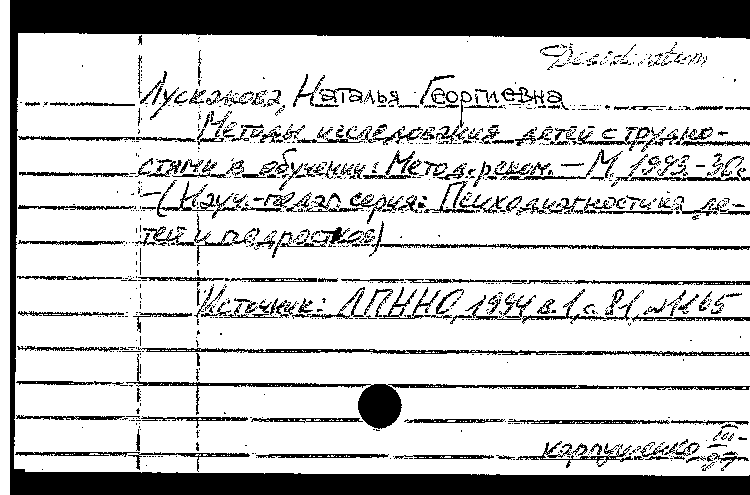 Desideratum
Лусканова, Наталья Георгиевна
Методы исследования детей с трудно-
стями в обучении: Метод. реком. — М, 1993. - 30с
- (Науч.-педаг серия: Психодиагностика де-
тей и подростков)
Источник: ЛПННО, 1994, в. 1, с 81, №1165
карпушенко III-
97